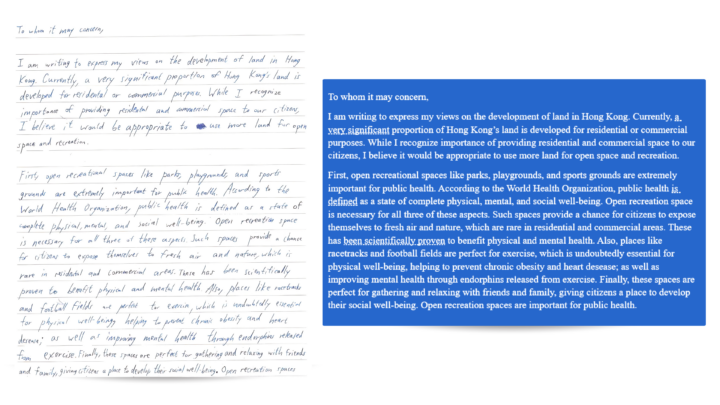 To whom it may concern,
I am writing to express my views on the development of land in Hong
Kong. Currently, a very significant proportion of Hong Kong's land is
developed for residential or commercial purposes. While I recognize
importance of providing residential and commercial space to our citizens,
I believe it would be appropriate to use more land for open
space and recreation.
First, open recreational spaces like parks, playgrounds, and sports
grounds are extremely important for public health. According to the
World Health Organization, public health is defined as a state of
complete physical, mental, and social well-being. Open recreation space
is necessary for all three of these aspects. Such spaces provide a chance
for citizens to expose themselves to fresh air and nature, which is
rare in residential and commercial areas. These has been scientifically
proven to benefit physical and mental health. Also, places like racetracks
and football fields are perfect for exercise, which is undoubtedly essential
for physical well-being, helping to prevent chronic obesity and heart
desease; as well as improving mental health through endorphins released
from exercise. Finally, these spaces are perfect for gathering and relaxing with friends
and family, giving citizens a place to develop their social well-being. Open recreation spaces
To whom it may concern,
I am writing to express my views on the development of land in Hong Kong. Currently, a
very significant proportion of Hong Kong's land is developed for residential or commercial
purposes. While I recognize importance of providing residential and commercial space to our
citizens, I believe it would be appropriate to use more land for open space and recreation.
First, open recreational spaces like parks, playgrounds, and sports grounds are extremely
important for public health. According to the World Health Organization, public health is
defined as a state of complete physical, mental, and social well-being. Open recreation space
is necessary for all three of these aspects. Such spaces provide a chance for citizens to expose
themselves to fresh air and nature, which are rare in residential and commercial areas. These
has been scientifically proven to benefit physical and mental health. Also, places like
racetracks and football fields are perfect for exercise, which is undoubtedly essential for
physical well-being, helping to prevent chronic obesity and heart desease; as well as
improving mental health through endorphins released from exercise. Finally, these spaces are
perfect for gathering and relaxing with friends and family, giving citizens a place to develop
their social well-being. Open recreation spaces are important for public health.